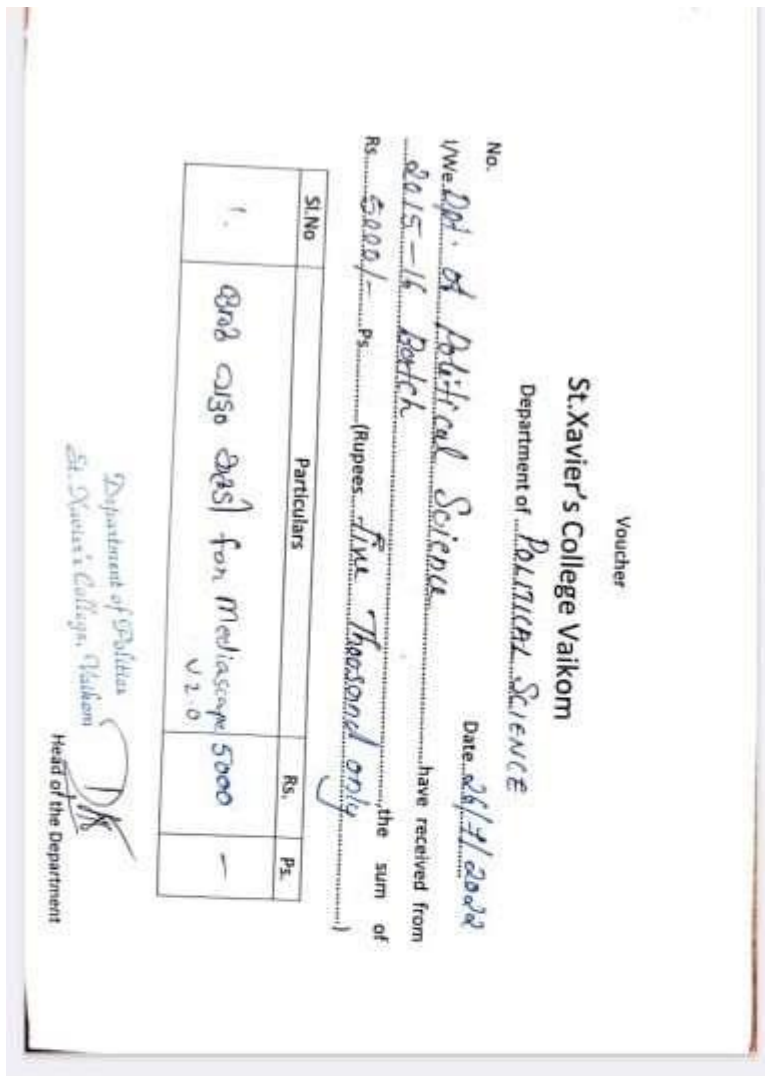 Voucher
St.Xavier's College Vaikom
Department of POLITICAL SCIENCE
No. Date 26/7/2022
I/We Dpt. of Political Science have received from
2015-16 Batch ,the sum of
Rs. 5000/- Ps. (Rupees five Thousand only)
Sl.No Particulars Rs. Ps.
1. for Mediascape 5000 -
V 2.0
Department of Politics
St. Xavier's College, Vaikom
Head of the Department